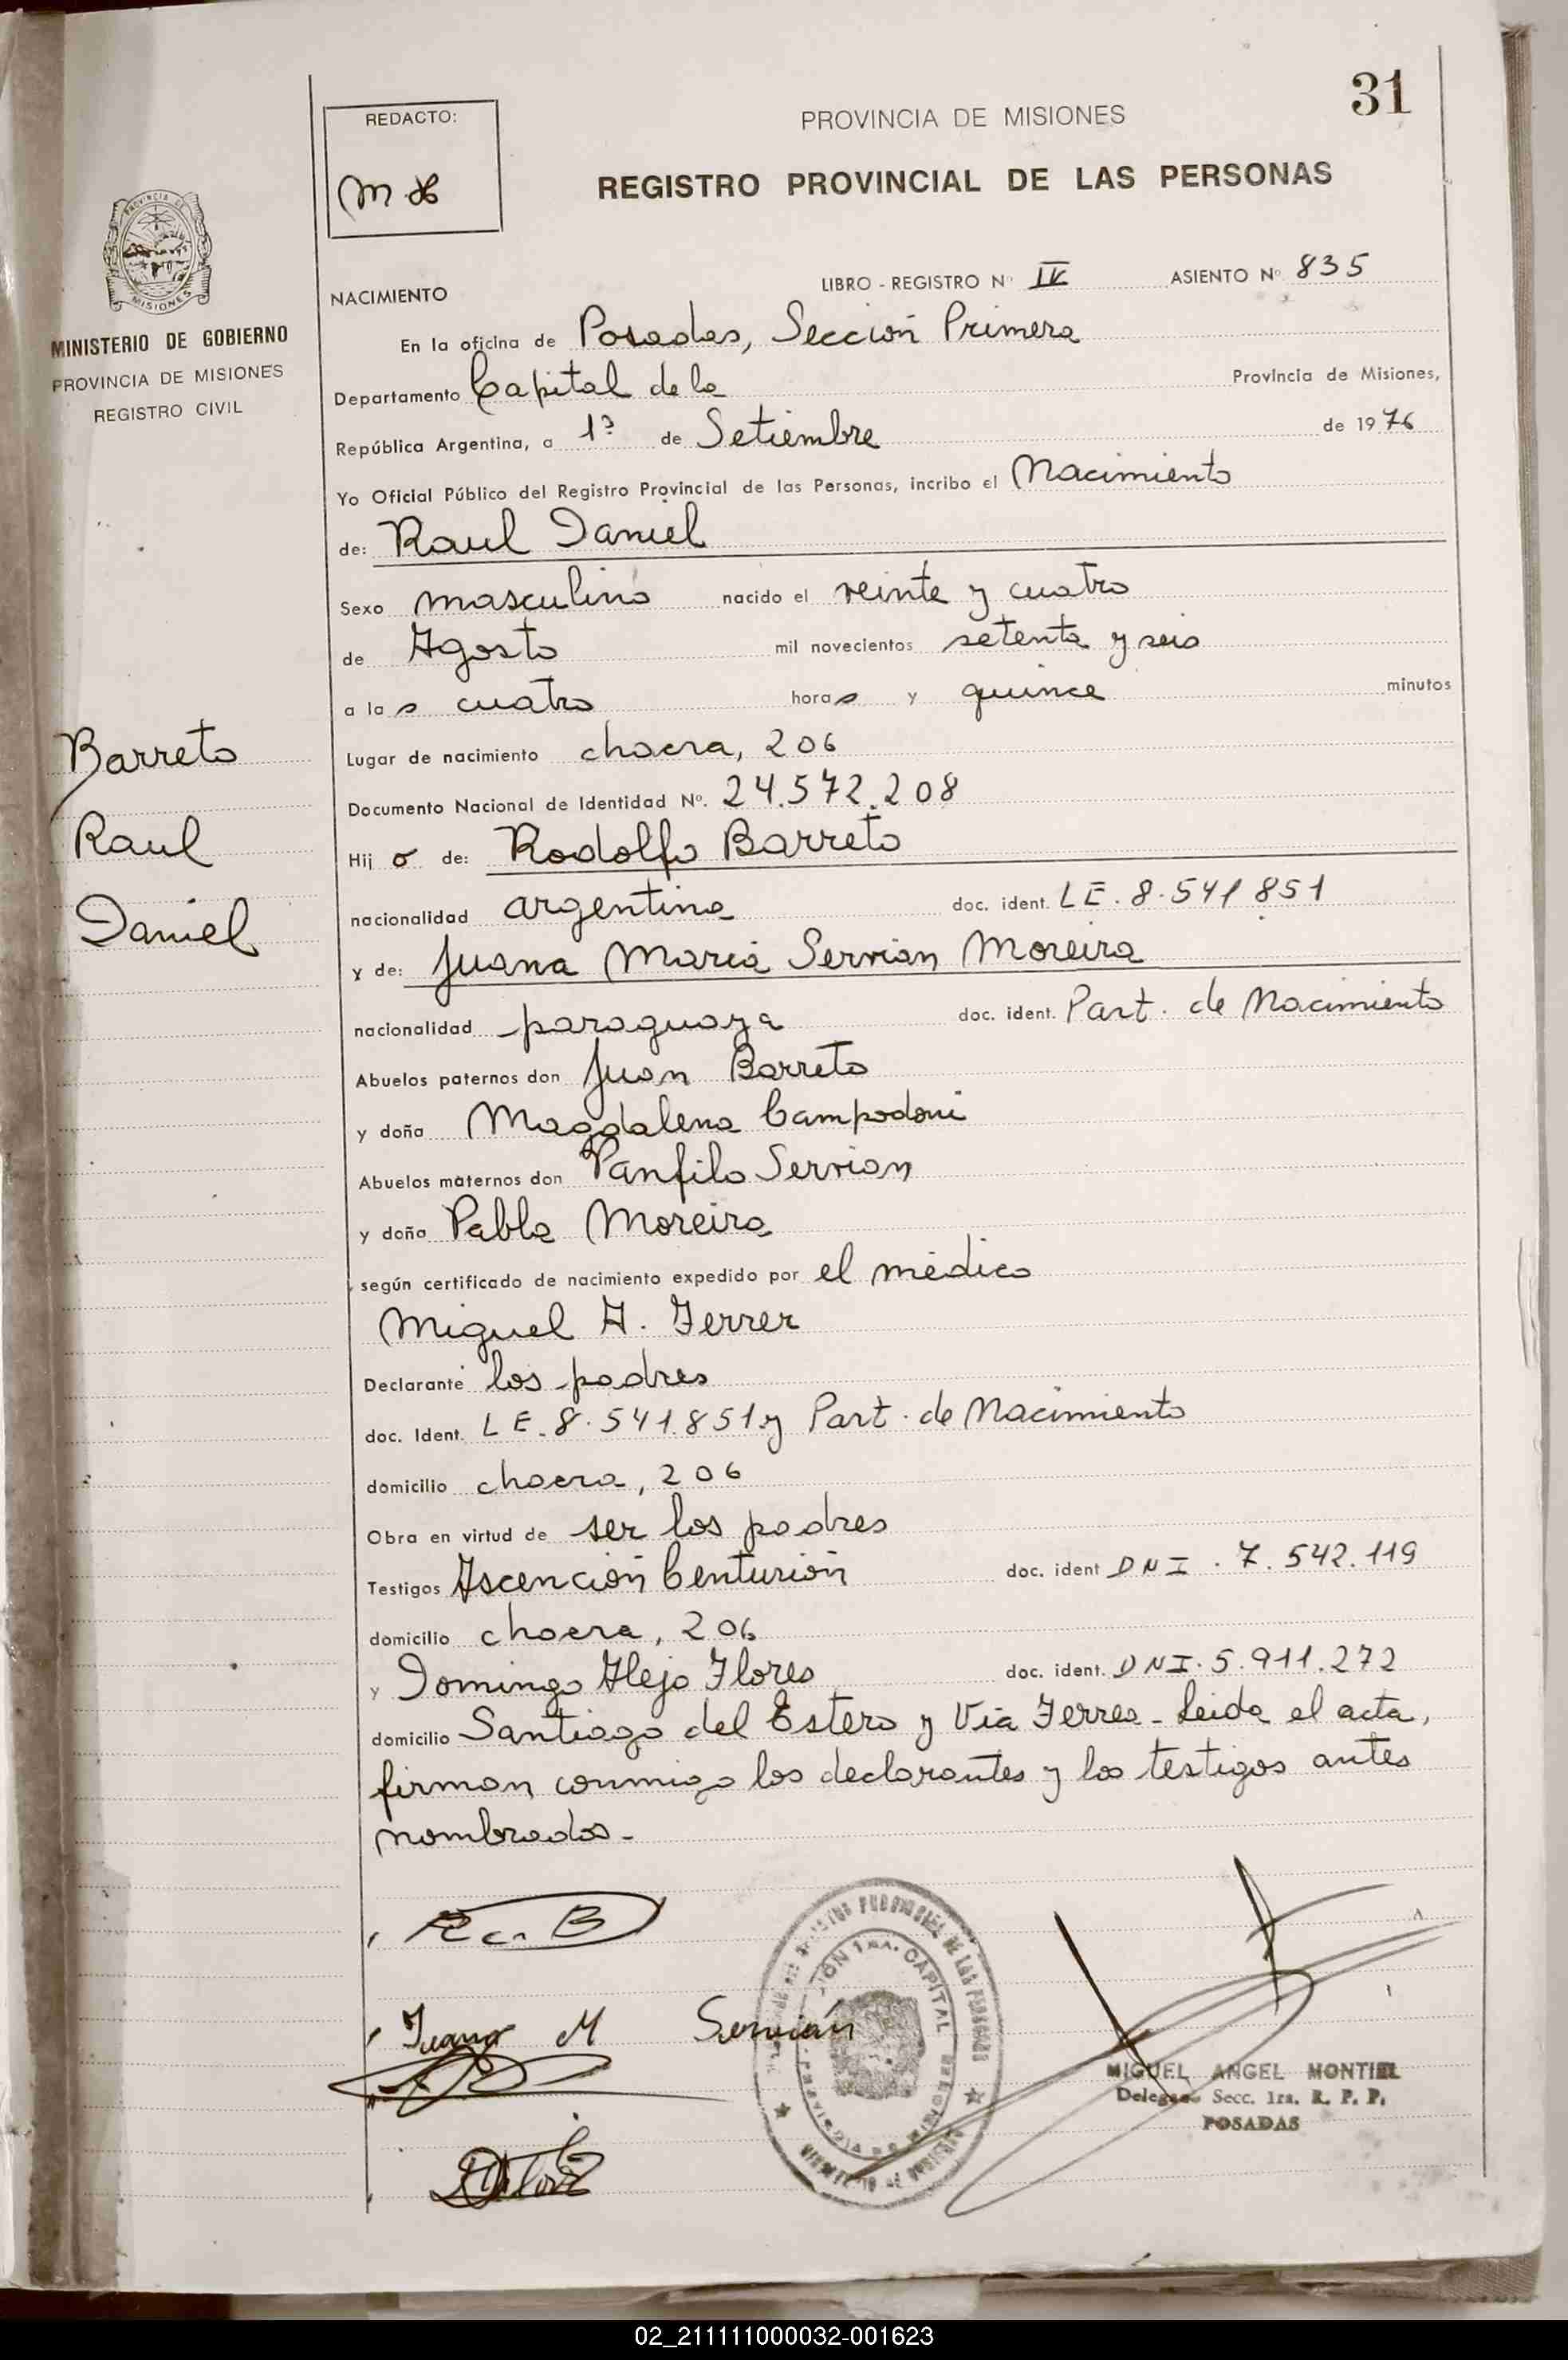 31
REDACTO:
PROVINCIA DE MISIONES
REGISTRO PROVINCIAL DE LAS PERSONAS
MISIONES
MINISTERIO DE GOBIERNO
PROVINCIA DE MISIONES
REGISTRO CIVIL
NACIMIENTO LIBRO - REGISTRO Nº IV ASIENTO Nº 835
En la oficina de Posadas, Sección Primera
Departamento Capital de la Provincia de Misiones,
República Argentina, a 1º de Setiembre de 1976
Yo Oficial Público del Registro Provincial de las Personas, incribo el Nacimiento
de: Raul Daniel
Sexo masculino nacido el veinte y cuatro
de Agosto mil novecientos setenta y seis
a las cuatro horas y quince minutos
Barreto
Raul
Daniel
Lugar de nacimiento chacra, 206
Documento Nacional de Identidad Nº. 24.572.208
Hijo de: Rodolfo Barreto
nacionalidad argentina doc. ident. LE. 8.541851
y de: Juana Maria Servian Moreira
nacionalidad paraguaya doc. ident. Part. de Nacimiento
Abuelos paternos don Juan Barreto
y doña Magdalena Campodoni
Abuelos maternos don Panfilo Servian
y doña Pabla Moreira
según certificado de nacimiento expedido por el médico
Miguel A. Ferrer
Declarante los padres
doc. Ident. LE. 8.541.851 y Part. de Nacimiento
domicilio chacra, 206
Obra en virtud de ser los padres
Testigos Ascención Centurión doc. ident DNI. 7.542.119
domicilio chacra, 206
y Domingo Alejo Flores doc. ident. DNI. 5.911.272
domicilio Santiago del Estero y Via Ferrea - Leida el acta,
firman conmigo los declarantes y los testigos antes
nombrados.-
Juana M Servián
1RA. CAPITAL
MIGUEL ANGEL MONTIEL
Delegado Secc. 1ra. R. P. P.
POSADAS
02_211111000032-001623